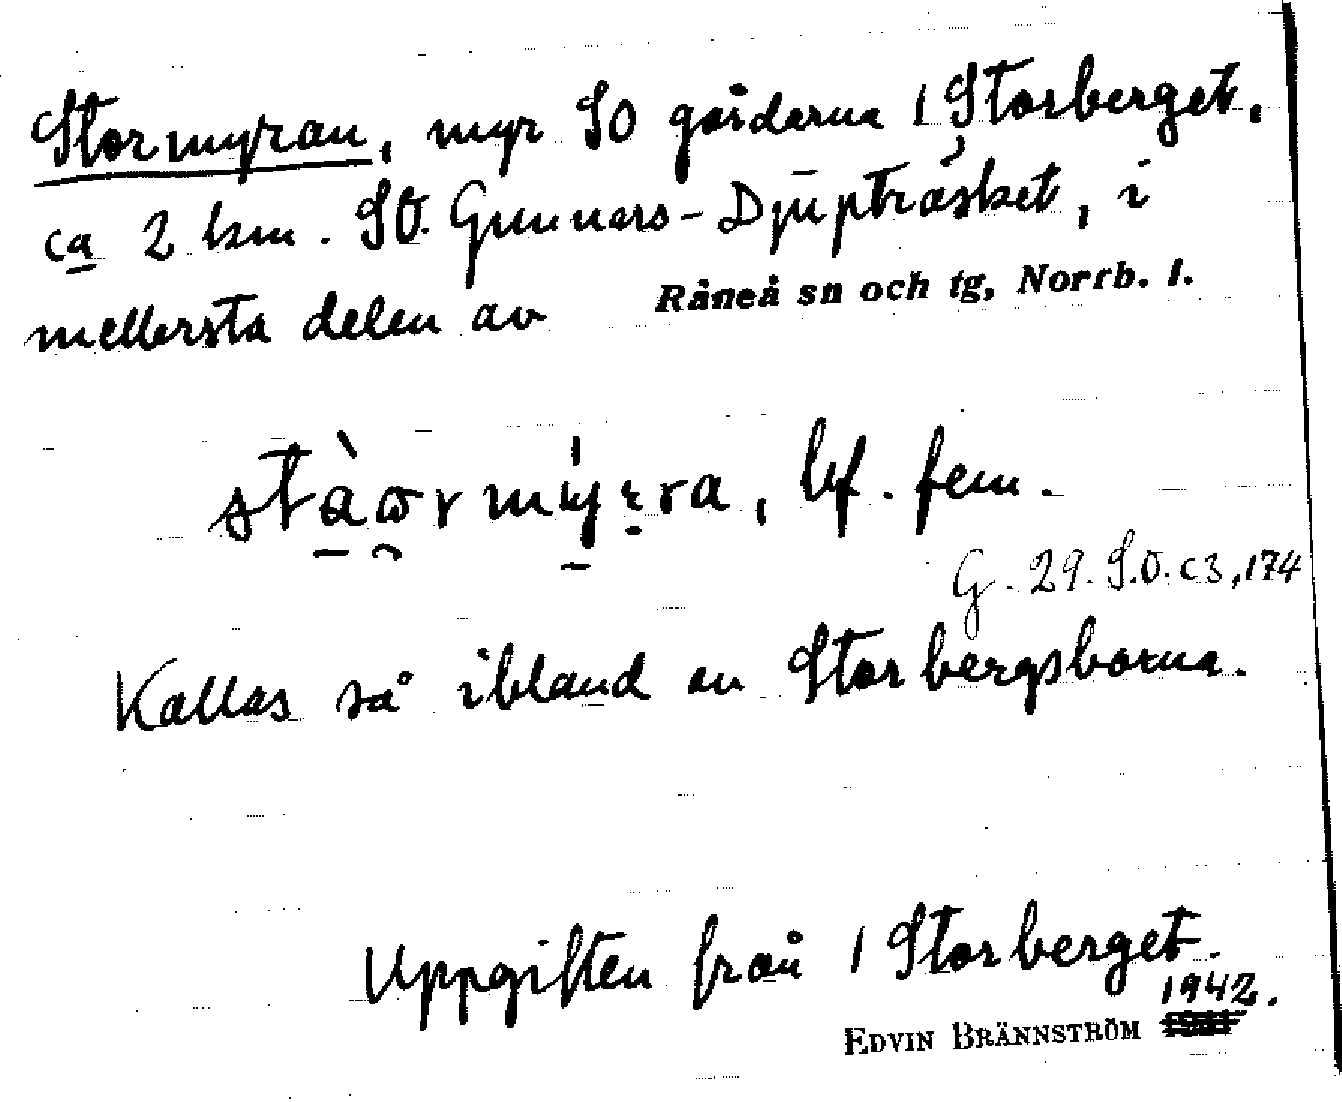 Stormyran, myr SO gårdarna 1 Storberget,
ca 2 km. SO. Gunnars-Djupträsket, i
mellersta delen av Råneå sn och tg, Norrb. l.
bf. fem.
G. 29. S.O. c3,174
Kallas så ibland av Storbergsborna.
Uppgiften från 1 Storberget.
1942.
EDVIN BRÄNNSTRÖM